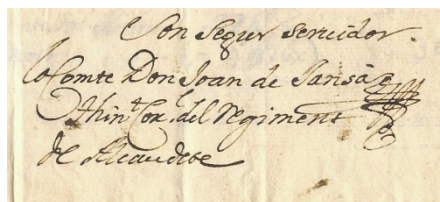 Son segur servidor.
Lo Comte Don Joan de Sansà
thin.t Cor.l del regiment
de Alcaudete